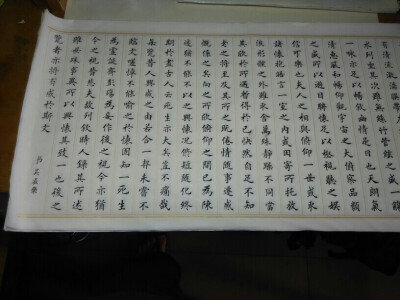 有清流激湍
水列坐其次雖無絲竹管絃之盛一
一詠亦足以暢敘幽情是日也天朗氣
清惠風和暢仰觀宇宙之大俯察品類
之盛所以遊目騁懷足以極視聽之娛
信可樂也夫人之相與俯仰一世或取
諸懷抱晤言一室之內或因寄所託放
浪形骸之外雖趣舍萬殊靜躁不同當
其欣於所遇暫得於己快然自足不知
老之將至及其所之既倦情隨事遷感
慨係之矣向之所欣俯仰之間已為陳
迹猶不能不以之興懷況脩短隨化終
期於盡古人云死生亦大矣豈不痛哉
每覽昔人興感之由若合一契未嘗不
臨文嗟悼不能喻之於懷固知一死生
為虛誕齊彭殤為妄作後之視今亦猶
今之視昔悲夫故列敘時人錄其所述
雖世殊事異所以興懷其致一也後之
覽者亦將有感於斯文